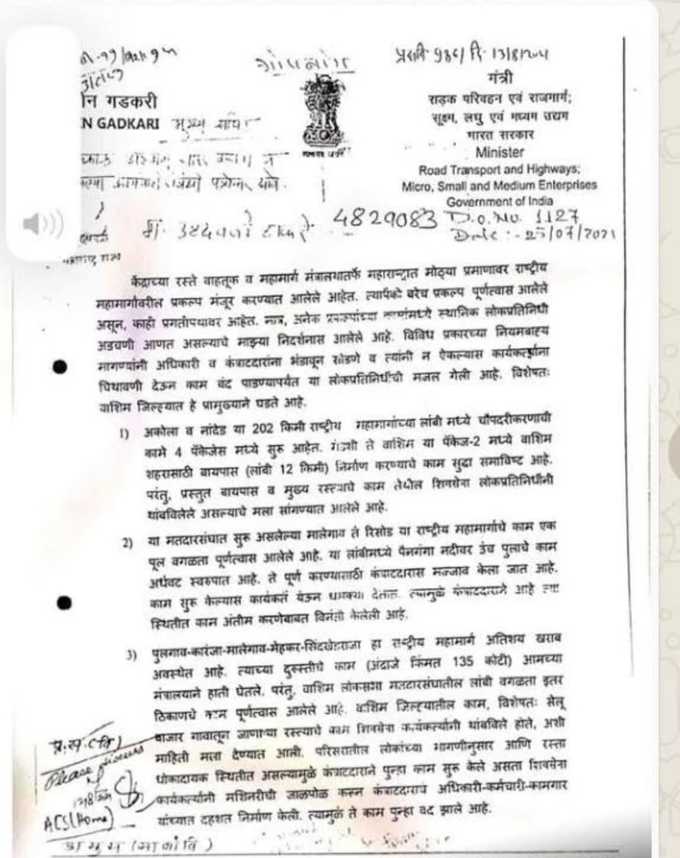 गोपनीय
न गडकरी
N GADKARI
मुख्य सचिव
मंत्री
सड़क परिवहन एवं राजमार्ग;
सूक्ष्म, लघु एवं मध्यम उद्यम
भारत सरकार
Minister
Road Transport and Highways;
Micro, Small and Medium Enterprises
Government of India
4829083 D.O.No. 1127
Date :- 25/07/2021
महाराष्ट्र राज्य
केंद्राच्या रस्ते वाहतूक व महामार्ग मंत्रालयातर्फे महाराष्ट्रात मोठ्या प्रमाणावर राष्ट्रीय
महामार्गावरील प्रकल्प मंजूर करण्यात आलेले आहेत. त्यापैकी बरेच प्रकल्प पूर्णत्वास आलेले
असून, काही प्रगतीपथावर आहेत. मात्र, अनेक प्रकल्पांच्या कामांमध्ये स्थानिक लोकप्रतिनिधी
अडचणी आणत असल्याचे माझ्या निदर्शनास आलेले आहे. विविध प्रकारच्या नियमबाह्य
मागण्यांनी अधिकारी व कंत्राटदारांना भंडावून सोडणे व त्यांनी न ऐकल्यास कार्यकर्त्यांना
चिथावणी देऊन काम बंद पाडण्यापर्यंत या लोकप्रतिनिधींची मजल गेली आहे. विशेषतः
वाशिम जिल्ह्यात हे प्रामुख्याने घडते आहे.
1) अकोला व नांदेड या 202 किमी राष्ट्रीय महामार्गाच्या लांबी मध्ये चौपदरीकरणाची
कामे 4 पॅकेजेस मध्ये सुरू आहेत. ते वाशिम या पॅकेज-2 मध्ये वाशिम
शहरासाठी बायपास (लांबी 12 किमी) निर्माण करण्याचे काम सुद्धा समाविष्ट आहे.
परंतु, प्रस्तुत बायपास व मुख्य रस्त्याचे काम तेथील शिवसेना लोकप्रतिनिधींनी
थांबविलेले असल्याचे मला सांगण्यात आलेले आहे.
2) या मतदारसंघात सुरू असलेल्या मालेगाव ते रिसोड या राष्ट्रीय महामार्गाचे काम एक
पूल वगळता पूर्णत्वास आलेले आहे. या लांबीमध्ये पैनगंगा नदीवर उंच पुलाचे काम
अर्धवट स्वरुपात आहे. ते पूर्ण करण्यासाठी कंत्राटदारास मज्जाव केला जात आहे.
काम सुरू केल्यास कार्यकर्ते येऊन धमक्या देतात. त्यामुळे कंत्राटदाराने आहे त्या
स्थितीत काम अंतीम करणेबाबत विनंती केलेली आहे.
3) पुलगाव-कारंजा-मालेगाव-मेहकर-सिंदखेडराजा हा राष्ट्रीय महामार्ग अतिशय खराब
अवस्थेत आहे. त्याच्या दुरुस्तीचे काम (अंदाजे किंमत 135 कोटी) आमच्या
मंत्रालयाने हाती घेतले. परंतु, वाशिम लोकसभा मतदारसंघातील लांबी वगळता इतर
ठिकाणचे काम पूर्णत्वास आलेले आहे. वाशिम जिल्ह्यातील काम, विशेषतः सेलू
बाजार गावातून जाणाऱ्या रस्त्याचे काम शिवसेना कार्यकर्त्यांनी थांबविले होते, अशी
माहिती मला देण्यात आली. परिसरातील लोकांच्या मागणीनुसार आणि रस्ता
धोकादायक स्थितीत असल्यामुळे कंत्राटदाराने पुन्हा काम सुरू केले असता शिवसेना
कार्यकर्त्यांनी मशिनरीची जाळपोळ करून कंत्राटदाराचे अधिकारी-कर्मचारी-कामगार
यांच्यात दहशत निर्माण केली. त्यामुळे ते काम पुन्हा बंद झाले आहे.
Please discuss
ACS(Home)